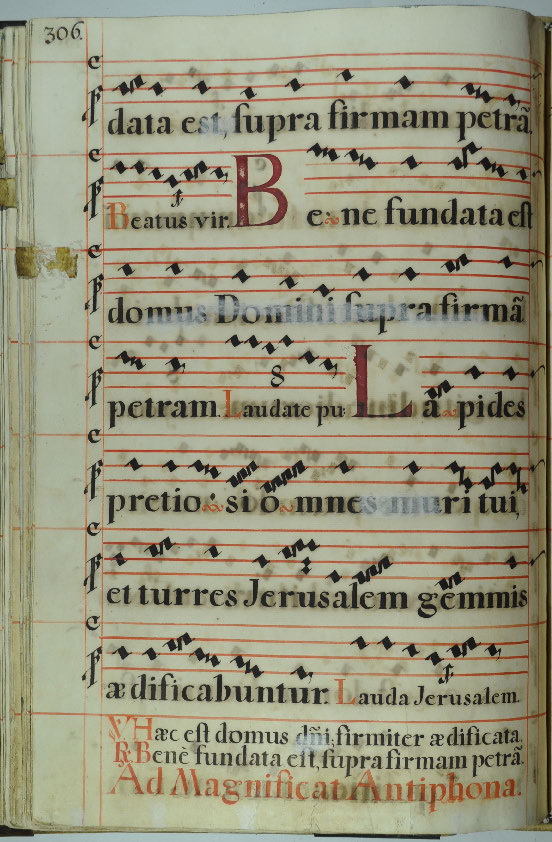 306.
data est, supra firmam petrã.
Beatus vir. Bene fundata est
domus Domini supra firmã
petram. Laudate pu: 8 Lapides
pretiosi omnes muri tui,
et turres Jerusalem gemmis
ædificabuntur. Lauda Jerusalem.
℣ Hæc est domus dñi, firmiter ædificata.
℟ Benè fundata est, supra firmam petrã.
Ad Magnificat Antiphona.